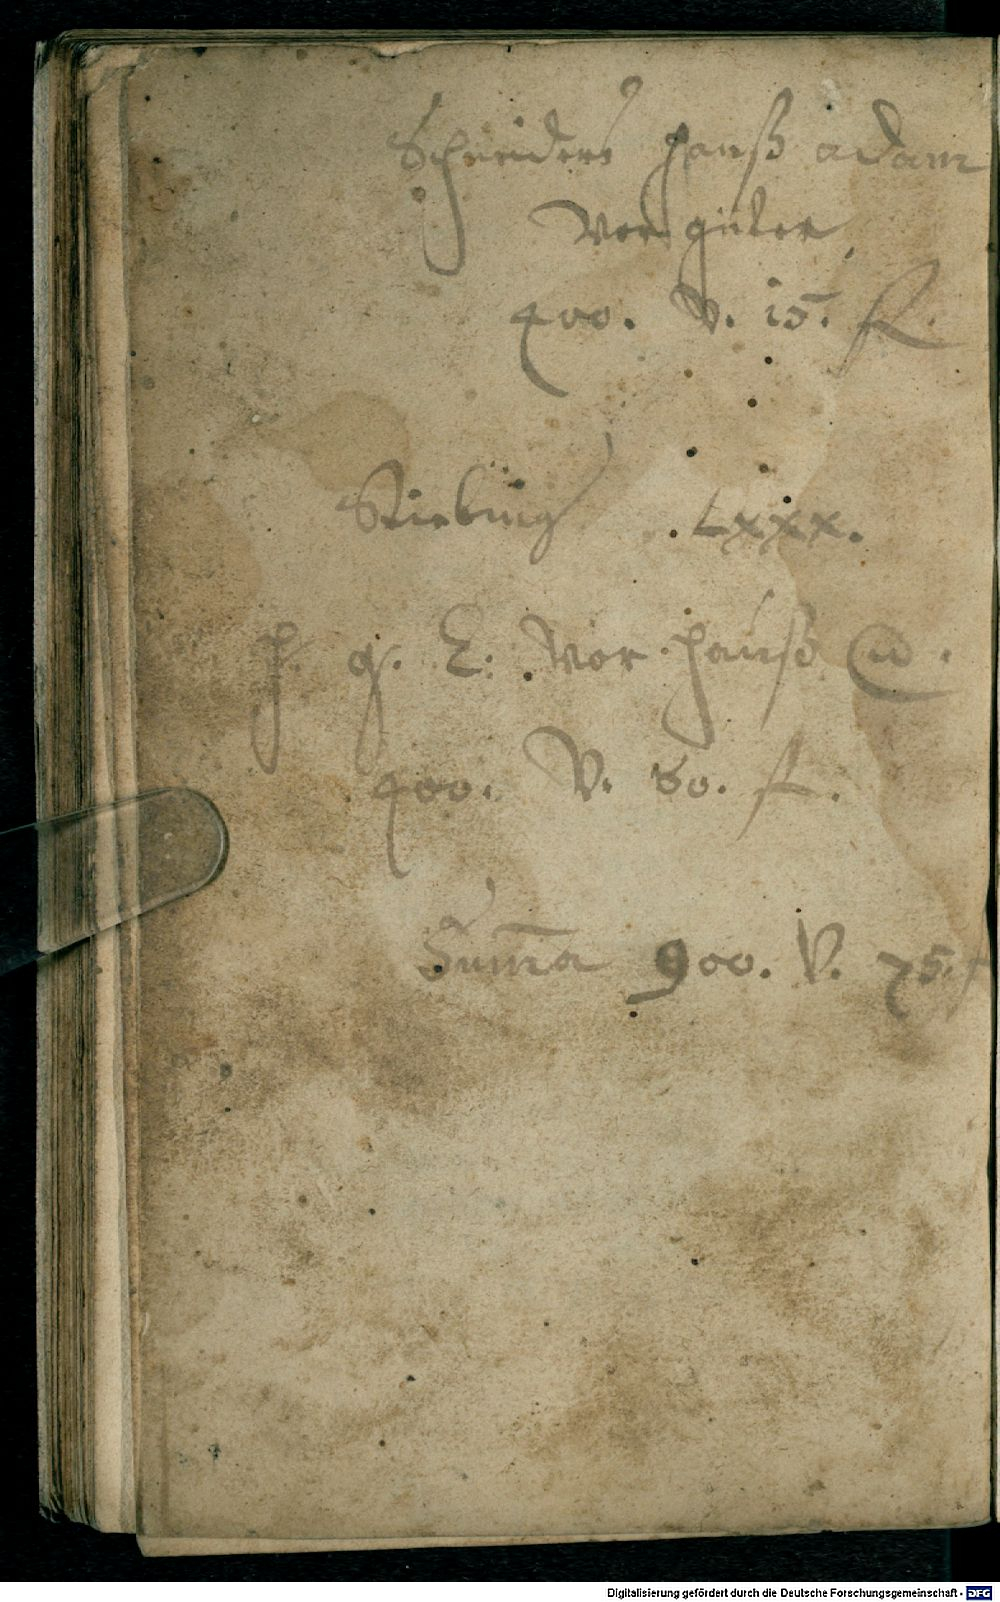 Schneiders hanß adam
vor güter
400. V. 15. fl.
Stiebing Lxxx.
h. g. E. vor hauß
400. V. 80. fl.
Summa 900. V. 75. f
Digitalisierung gefördert durch die Deutsche Forschungsgemeinschaft - DFG